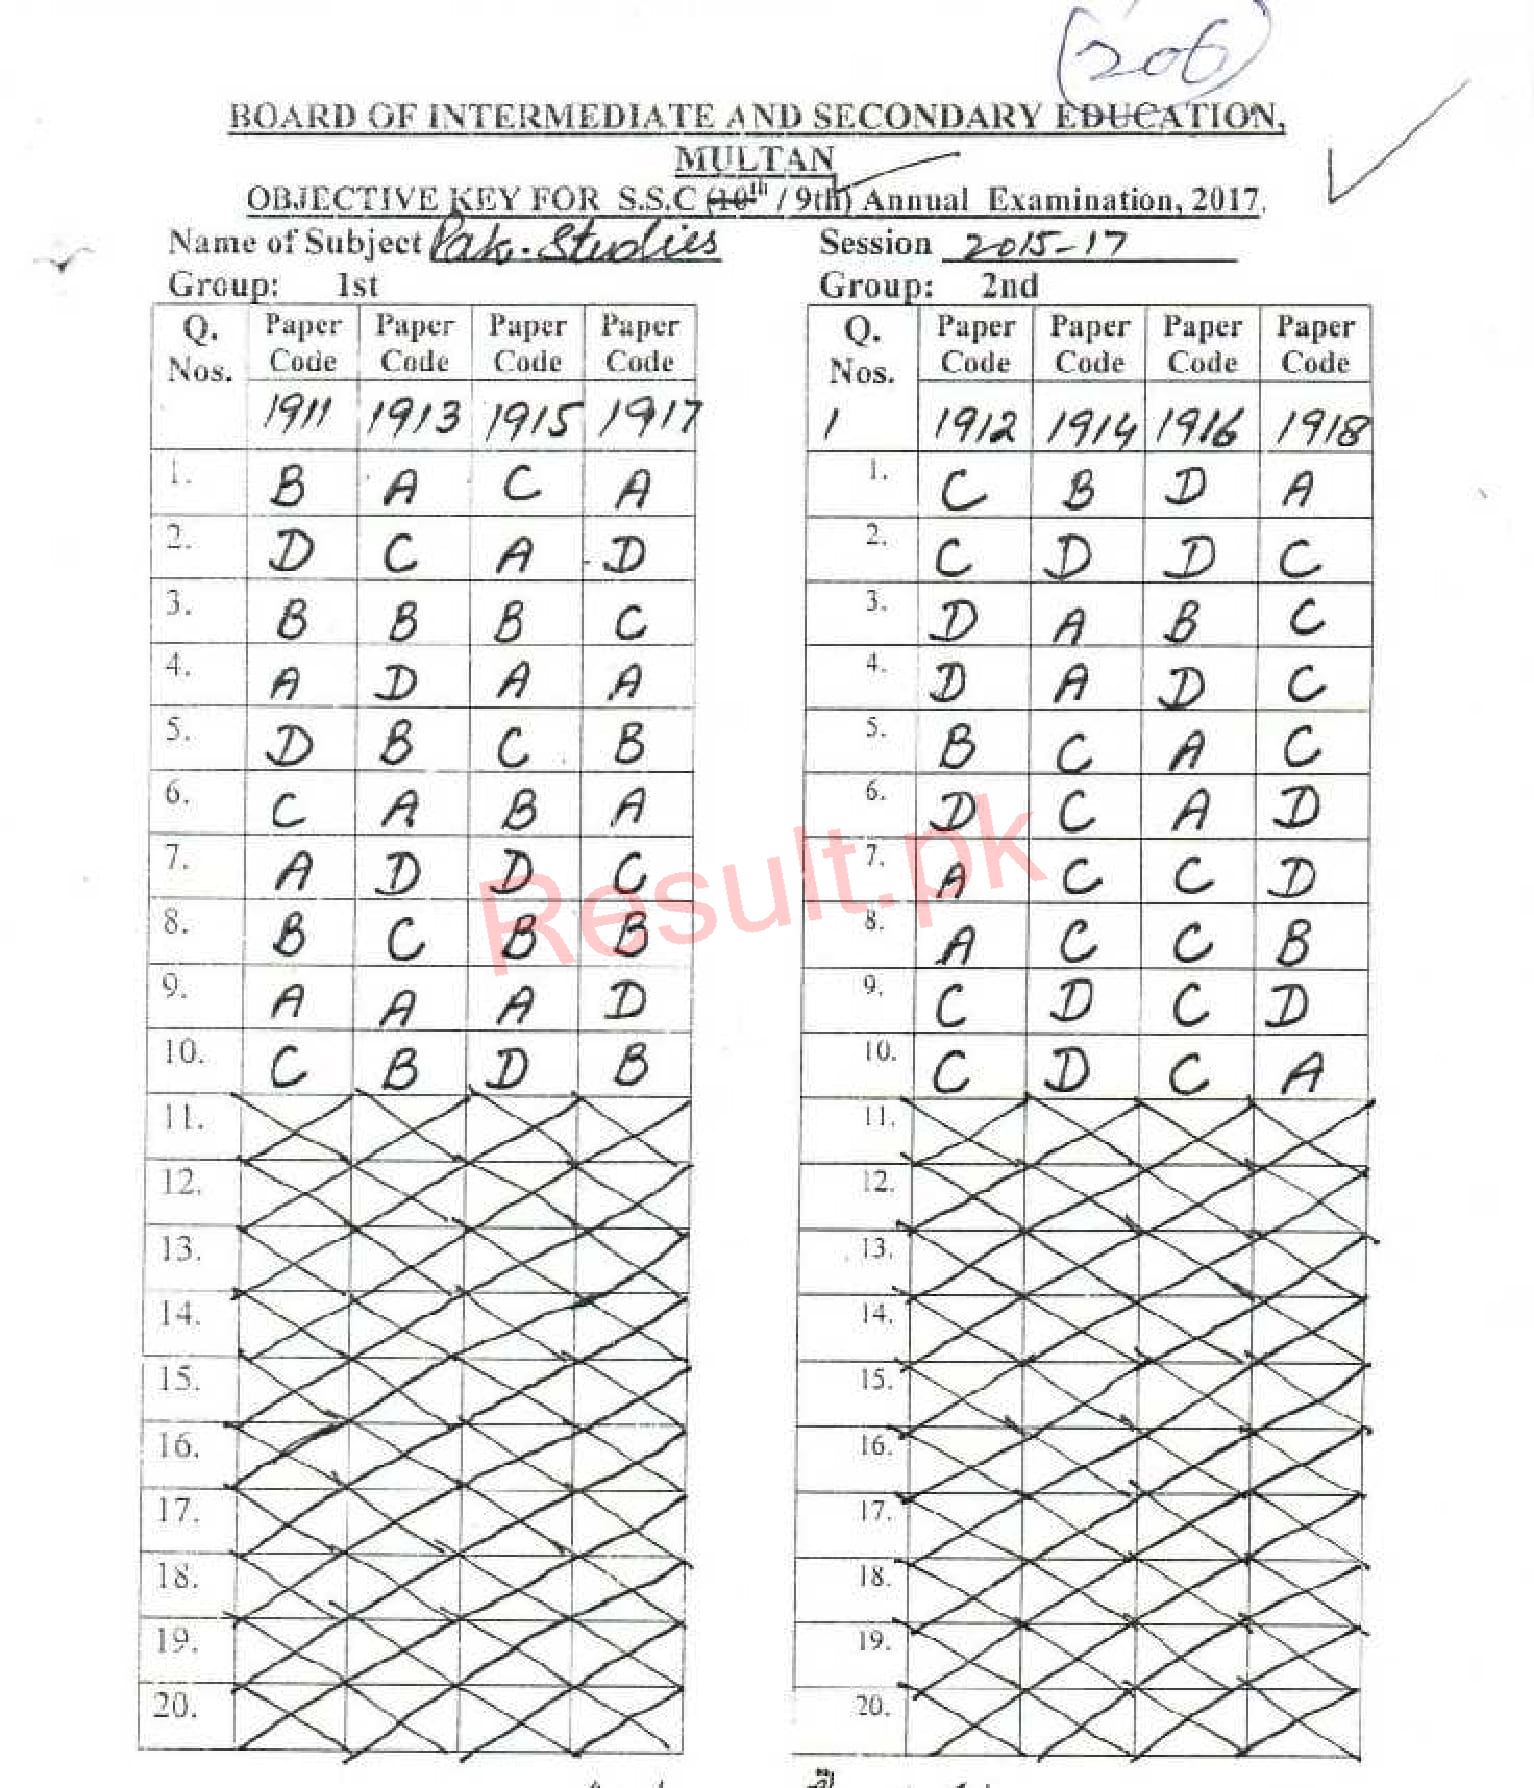 206
BOARD OF INTERMEDIATE AND SECONDARY EDUCATION,
MULTAN
OBJECTIVE KEY FOR S.S.C (10th / 9th) Annual Examination, 2017.
Name of Subject Pak. Studies Session 2015-17
Group: 1st Group: 2nd
Q. Nos. Paper Code Paper Code Paper Code Paper Code Q. Nos. Paper Code Paper Code Paper Code Paper Code
1911 1913 1915 1917 1 1912 1914 1916 1918
1. B A C A 1. C B D A
2. D C A D 2. C D D C
3. B B B C 3. D A B C
4. A D A A 4. D A D C
5. D B C B 5. B C A C
6. C A B A 6. D C A D
7. A D D C 7. A C C D
8. B C B B 8. A C C B
9. A A A D 9. C D C D
10. C B D B 10. C D C A
11. 11.
12. 12.
13. 13.
14. 14.
15. 15.
16. 16.
17. 17.
18. 18.
19. 19.
20. 20.
Result.pk